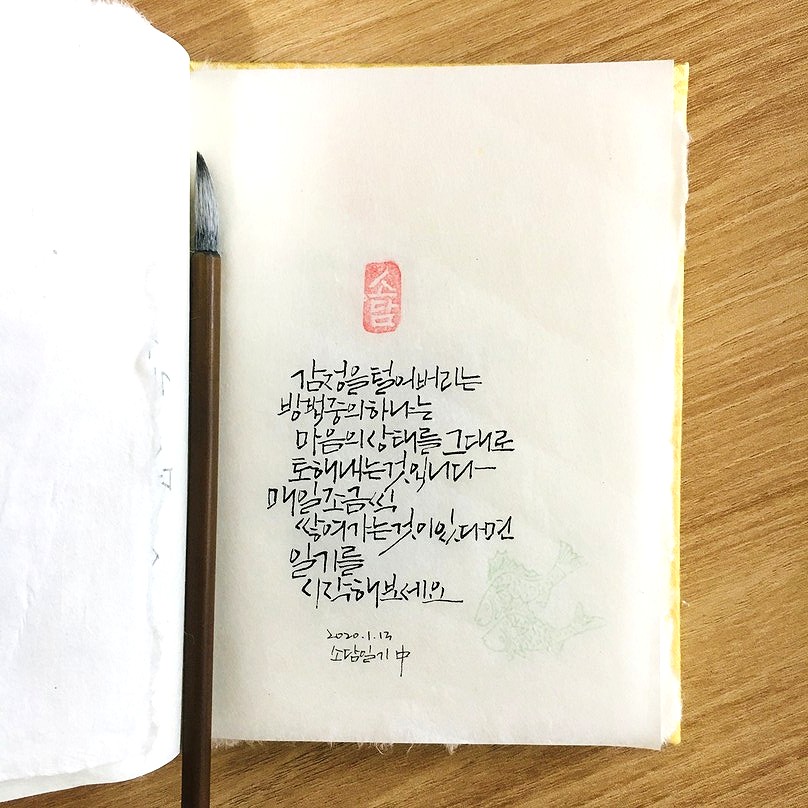 소담
감정을털어버리는
방법중의하나는
마음의상태를 그대로
토해내는것입니다
매일조금씩
쌓여가는것이있다면
일기를
시작해보세요
2020.1.13
소담일기 中